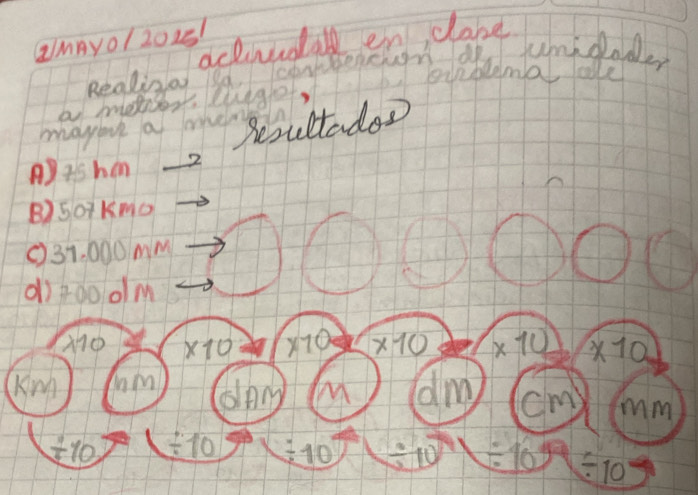 2/MAYO/2025/
actividad en clase
Realiza la conversión de unidades
a metros. luego, ordena de
mayor a menor
Resultados
A) 75 hm →
B) 507 Kmo →
c) 31.000 mm →
d) 700 dm →
x10 x10 x10 x10 x10 x10
Km hm dAM M dm Cm mm
÷10 ÷10 ÷10 ÷10 ÷10 ÷10